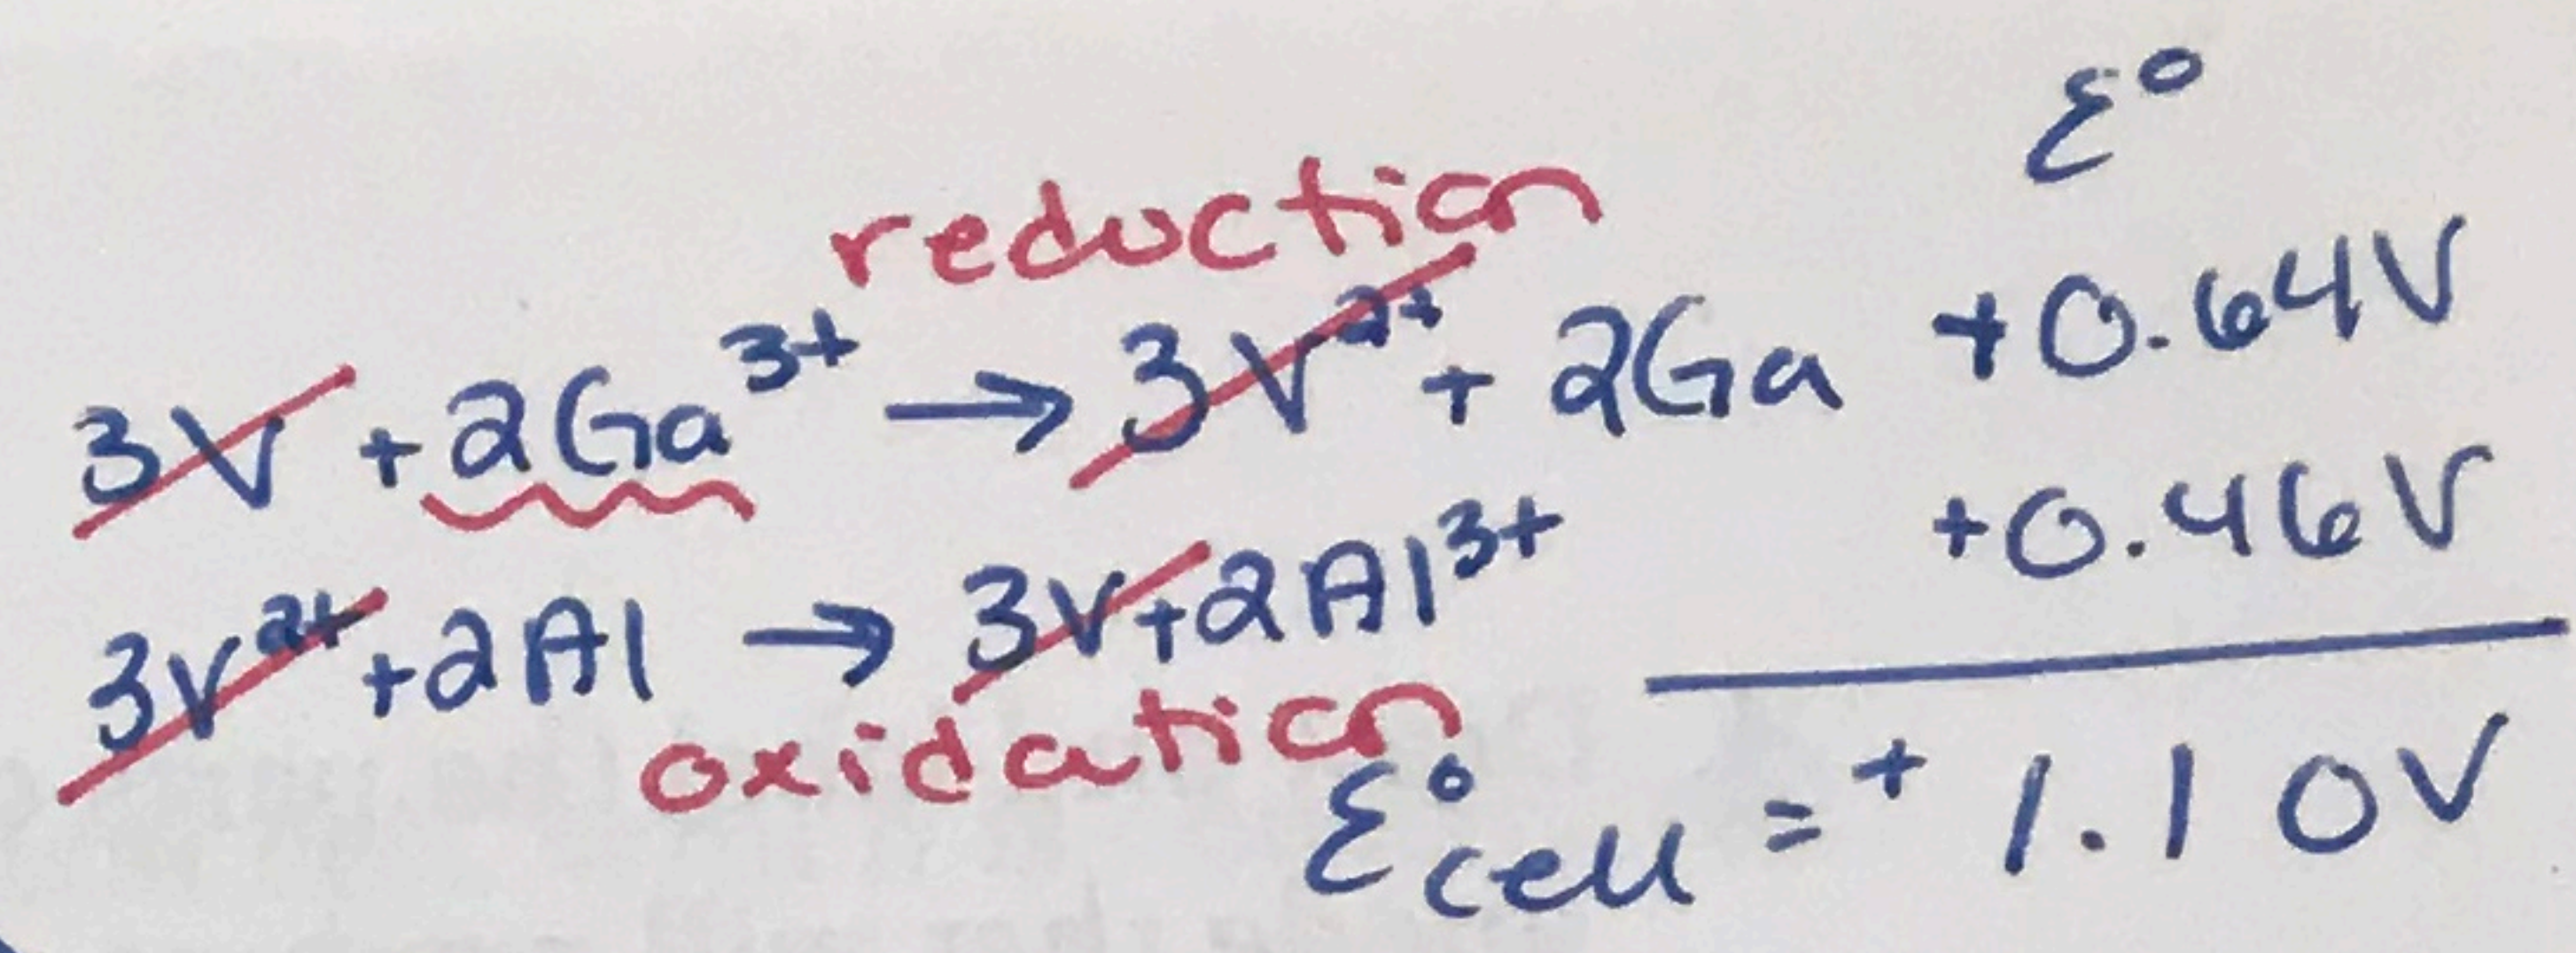 ℰ°
reduction
3V + 2Ga³⁺ → 3V²⁺ + 2Ga +0.64V
3V²⁺ + 2Al → 3V + 2Al³⁺ +0.46V
oxidation
ℰ°cell = +1.10V